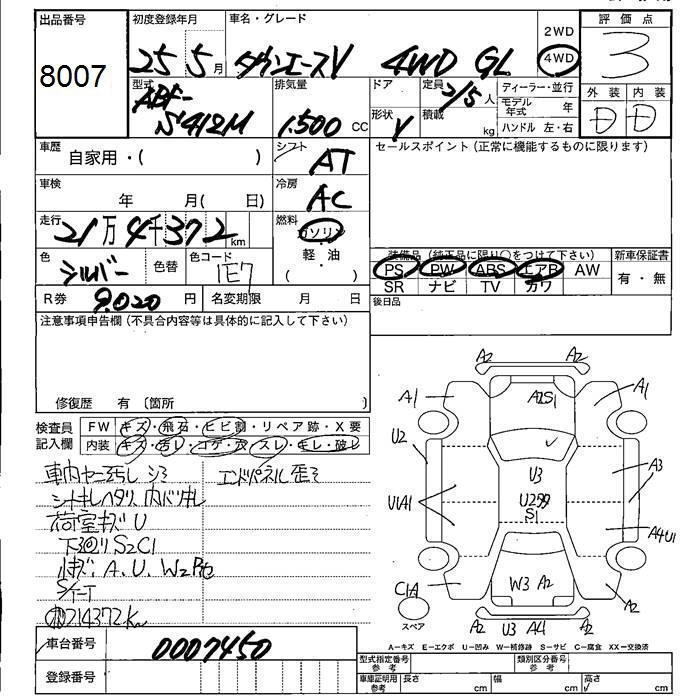 出品番号 初度登録年月 車名・グレード 2WD 評価点
8007 25 5月 タウンエースV 4WD GL 4WD 3
型式 排気量 ドア 定員 2/5人 ディーラー・並行 外装 内装
ABF- 形状 積載 モデル年式 年 D D
S412M 1.500 CC V kg ハンドル 左・右
車歴 シフト セールスポイント(正常に機能するものに限ります)
自家用・( ) AT
車検 冷房
年 月( 日) AC
走行 燃料
21万4千372km ガソリン
色 色替 色コード ・軽・油 装備品(純正品に限り○をつけて下さい) 新車保証書
シルバー 1E7 ( ) PS PW ABS エアB AW 有・無
SR ナビ TV カワ
R券 9.020円 名変期限 月 日 後日品
注意事項申告欄(不具合内容等は具体的に記入して下さい)
修復歴 有 〔箇所 〕
検査員 FW キズ・飛石・ヒビ割・リペア跡・X要
記入欄 内装 キズ・汚レ・コゲ・穴・スレ・キレ・破レ
車内ヤニ汚レ シミ エンドパネル歪ミ
シートキレヘタリ 内バリキレ
荷室キズ U
下廻リ S2C1
小キズ A.U.W2P他
214372K
A2 A2
A1 A2S1 A1
U2 U3 A3
U1A1 U2多 S1 A4U1
C1A W3 A2 A2
スペア A2 U3 A4 A2
A−キズ E−エクボ U−凹み W−補修跡 S−サビ C−腐食 XX−交換済
車台番号 0007450
型式指定番号 参考 類別区分番号 参考
登録番号 車庫証明用 参考 長さ cm 幅 cm 高さ cm